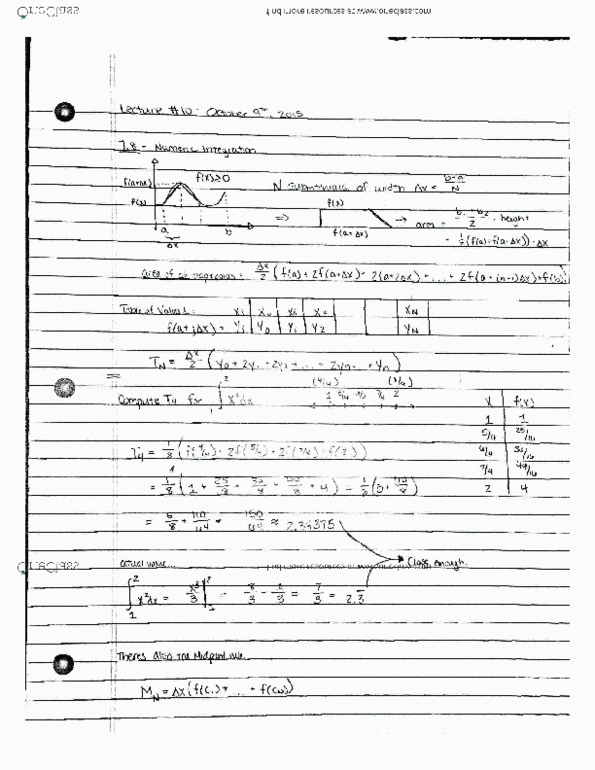 OneClass find more resources at www.oneclass.com
Lecture #10: October 9th, 2015
7.8 - Numeric Integration
f(a+Δx) f(x)≥0 N subintervals of width Δx = b-a/N
f(a) f(a)
a b ⇒ f(a+Δx) → area = b1+b2/2 · height
Δx = 1/2(f(a)+f(a+Δx))·Δx
Area of all trapezoids: Δx/2 (f(a)+2f(a+Δx)+2(a+2Δx)+...+2f(a+(n-1)Δx)+f(b))
Table of Values: xi x0 x1 x2 xN
f(a+jΔx) = yj y0 y1 y2 yN
TN = Δx/2 (y0+2y1+2y2+...+ +yn)
Compute T4 for ∫ 1 2 x²dx 1 5/4 6/4 7/4 2
x f(x)
1 1
5/4 25/16
6/4 36/16
7/4 49/16
2 4
T4 = 1/8 ( + 2f(5/4) + 2f(7/4) + f(2))
= 1/8 (1 + 25/8 + + + 4) = 1/8 (5+110/8)
= 5/8 + 110/64 = 150/64 ≈ 2.34375
actual value... Close enough.
∫ 1 2 x²dx = x³/3 | 1 2 = 8/3 - 1/3 = 7/3 = 2.3
OneClass find more resources at www.oneclass.com
Theres also the Midpoint rule
MN = Δx(f(c1)+ ... + f(cN))